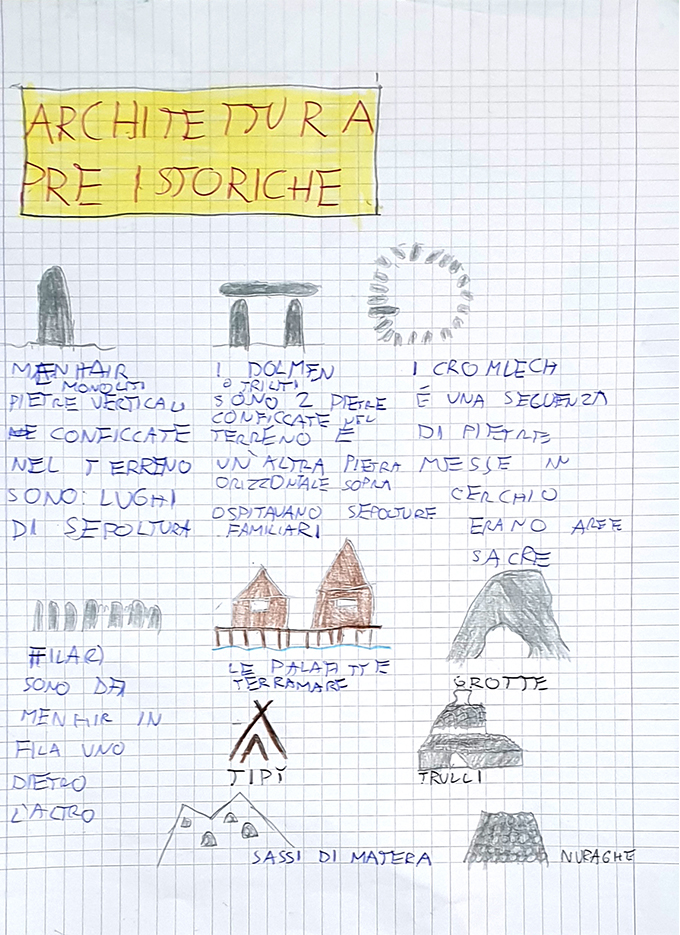 ARCHITETTURA
PREISTORICHE
MENHAIR
E MONOLITI
PIETRE VERTICALI
CONFICCATE
NEL TERRENO
SONO: LUGHI
DI SEPOLTURA
I DOLMEN
O TRILITI
SONO 2 PIETRE
CONFICCATE NEL
TERRENO E
UN'ALTRA PIETRA
ORIZZONIALE SOPRA
OSPITAVANO SEPOLTURE
FAMILIARI
I CROMLECH
É UNA SEQUENZA
DI PIETRE
MESSE IN
CERCHIO
ERANO AREE
SACRE
FILARI
SONO DEI
MENHIR IN
FILA UNO
DIETRO
L'ALTRO
LE PALAFITTE
TERRAMARE
GROTTE
TIPÍ
TRULLI
SASSI DI MATERA
NURAGHE